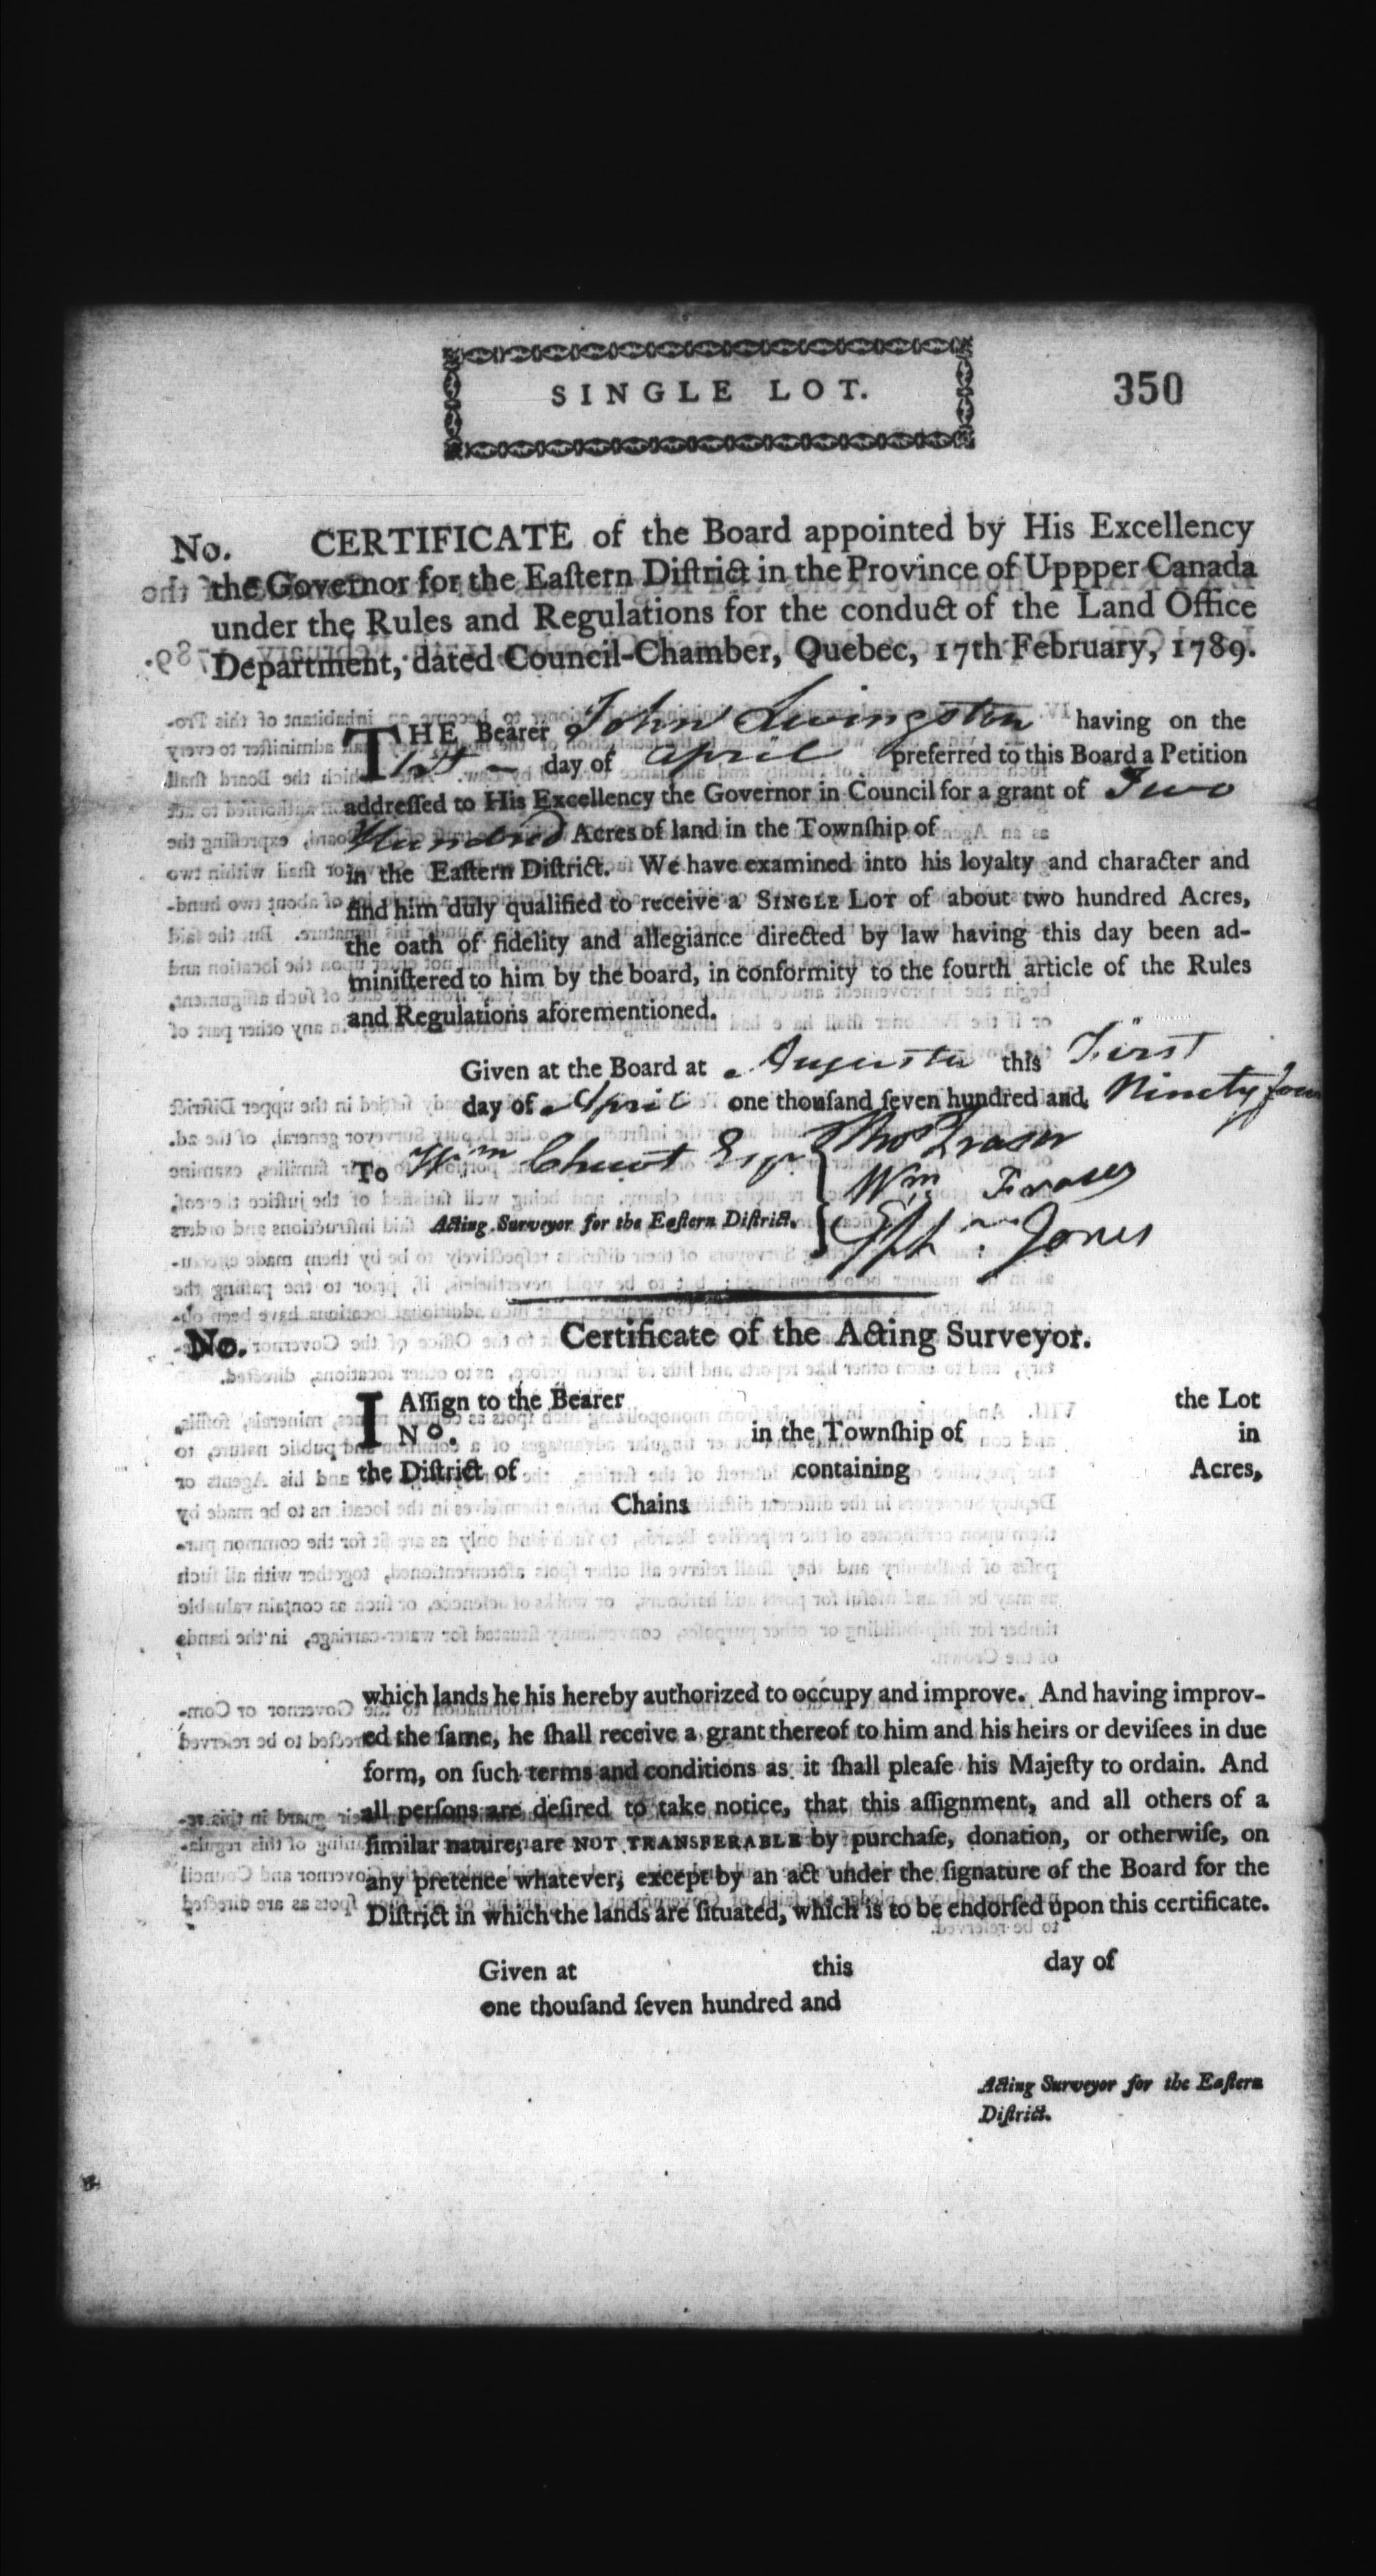 SINGLE LOT.
350
No. CERTIFICATE of the Board appointed by His Excellency
the Governor for the Eaſtern Diſtrict in the Province of Uppper Canada
under the Rules and Regulations for the conduct of the Land Office
Department, dated Council-Chamber, Quebec, 17th February, 1789.
THE Bearer John Livingston having on the
1st day of April preferred to this Board a Petition
addreſſed to His Excellency the Governor in Council for a grant of Two
Hundred Acres of land in the Townſhip of
in the Eaſtern Diſtrict. We have examined into his loyalty and character and
find him duly qualified to receive a SINGLE LOT of about two hundred Acres,
the oath of fidelity and allegiance directed by law having this day been ad-
miniſtered to him by the board, in conformity to the fourth article of the Rules
and Regulations aforementioned.
Given at the Board at Augusta this First
day of April one thouſand ſeven hundred and Ninety four
To Wm Chewt Esqr Thos Fraser
Wm Fraser
Acting Surveyor for the Eaſtern Diſtrict. Ephm Jones
No. Certificate of the Acting Surveyor.
I Aſſign to the Bearer the Lot
No. in the Townſhip of in
the Diſtrict of containing Acres,
Chains
which lands he his hereby authorized to occupy and improve. And having improv-
ed the ſame, he ſhall receive a grant thereof to him and his heirs or deviſees in due
form, on ſuch terms and conditions as it ſhall pleaſe his Majeſty to ordain. And
all perſons are deſired to take notice, that this aſſignment, and all others of a
ſimilar nature, are NOT TRANSFERABLE by purchaſe, donation, or otherwiſe, on
any pretence whatever, except by an act under the ſignature of the Board for the
Diſtrict in which the lands are ſituated, which is to be endorſed upon this certificate.
Given at this day of
one thouſand ſeven hundred and
Acting Surveyor for the Eaſtern
Diſtrict.